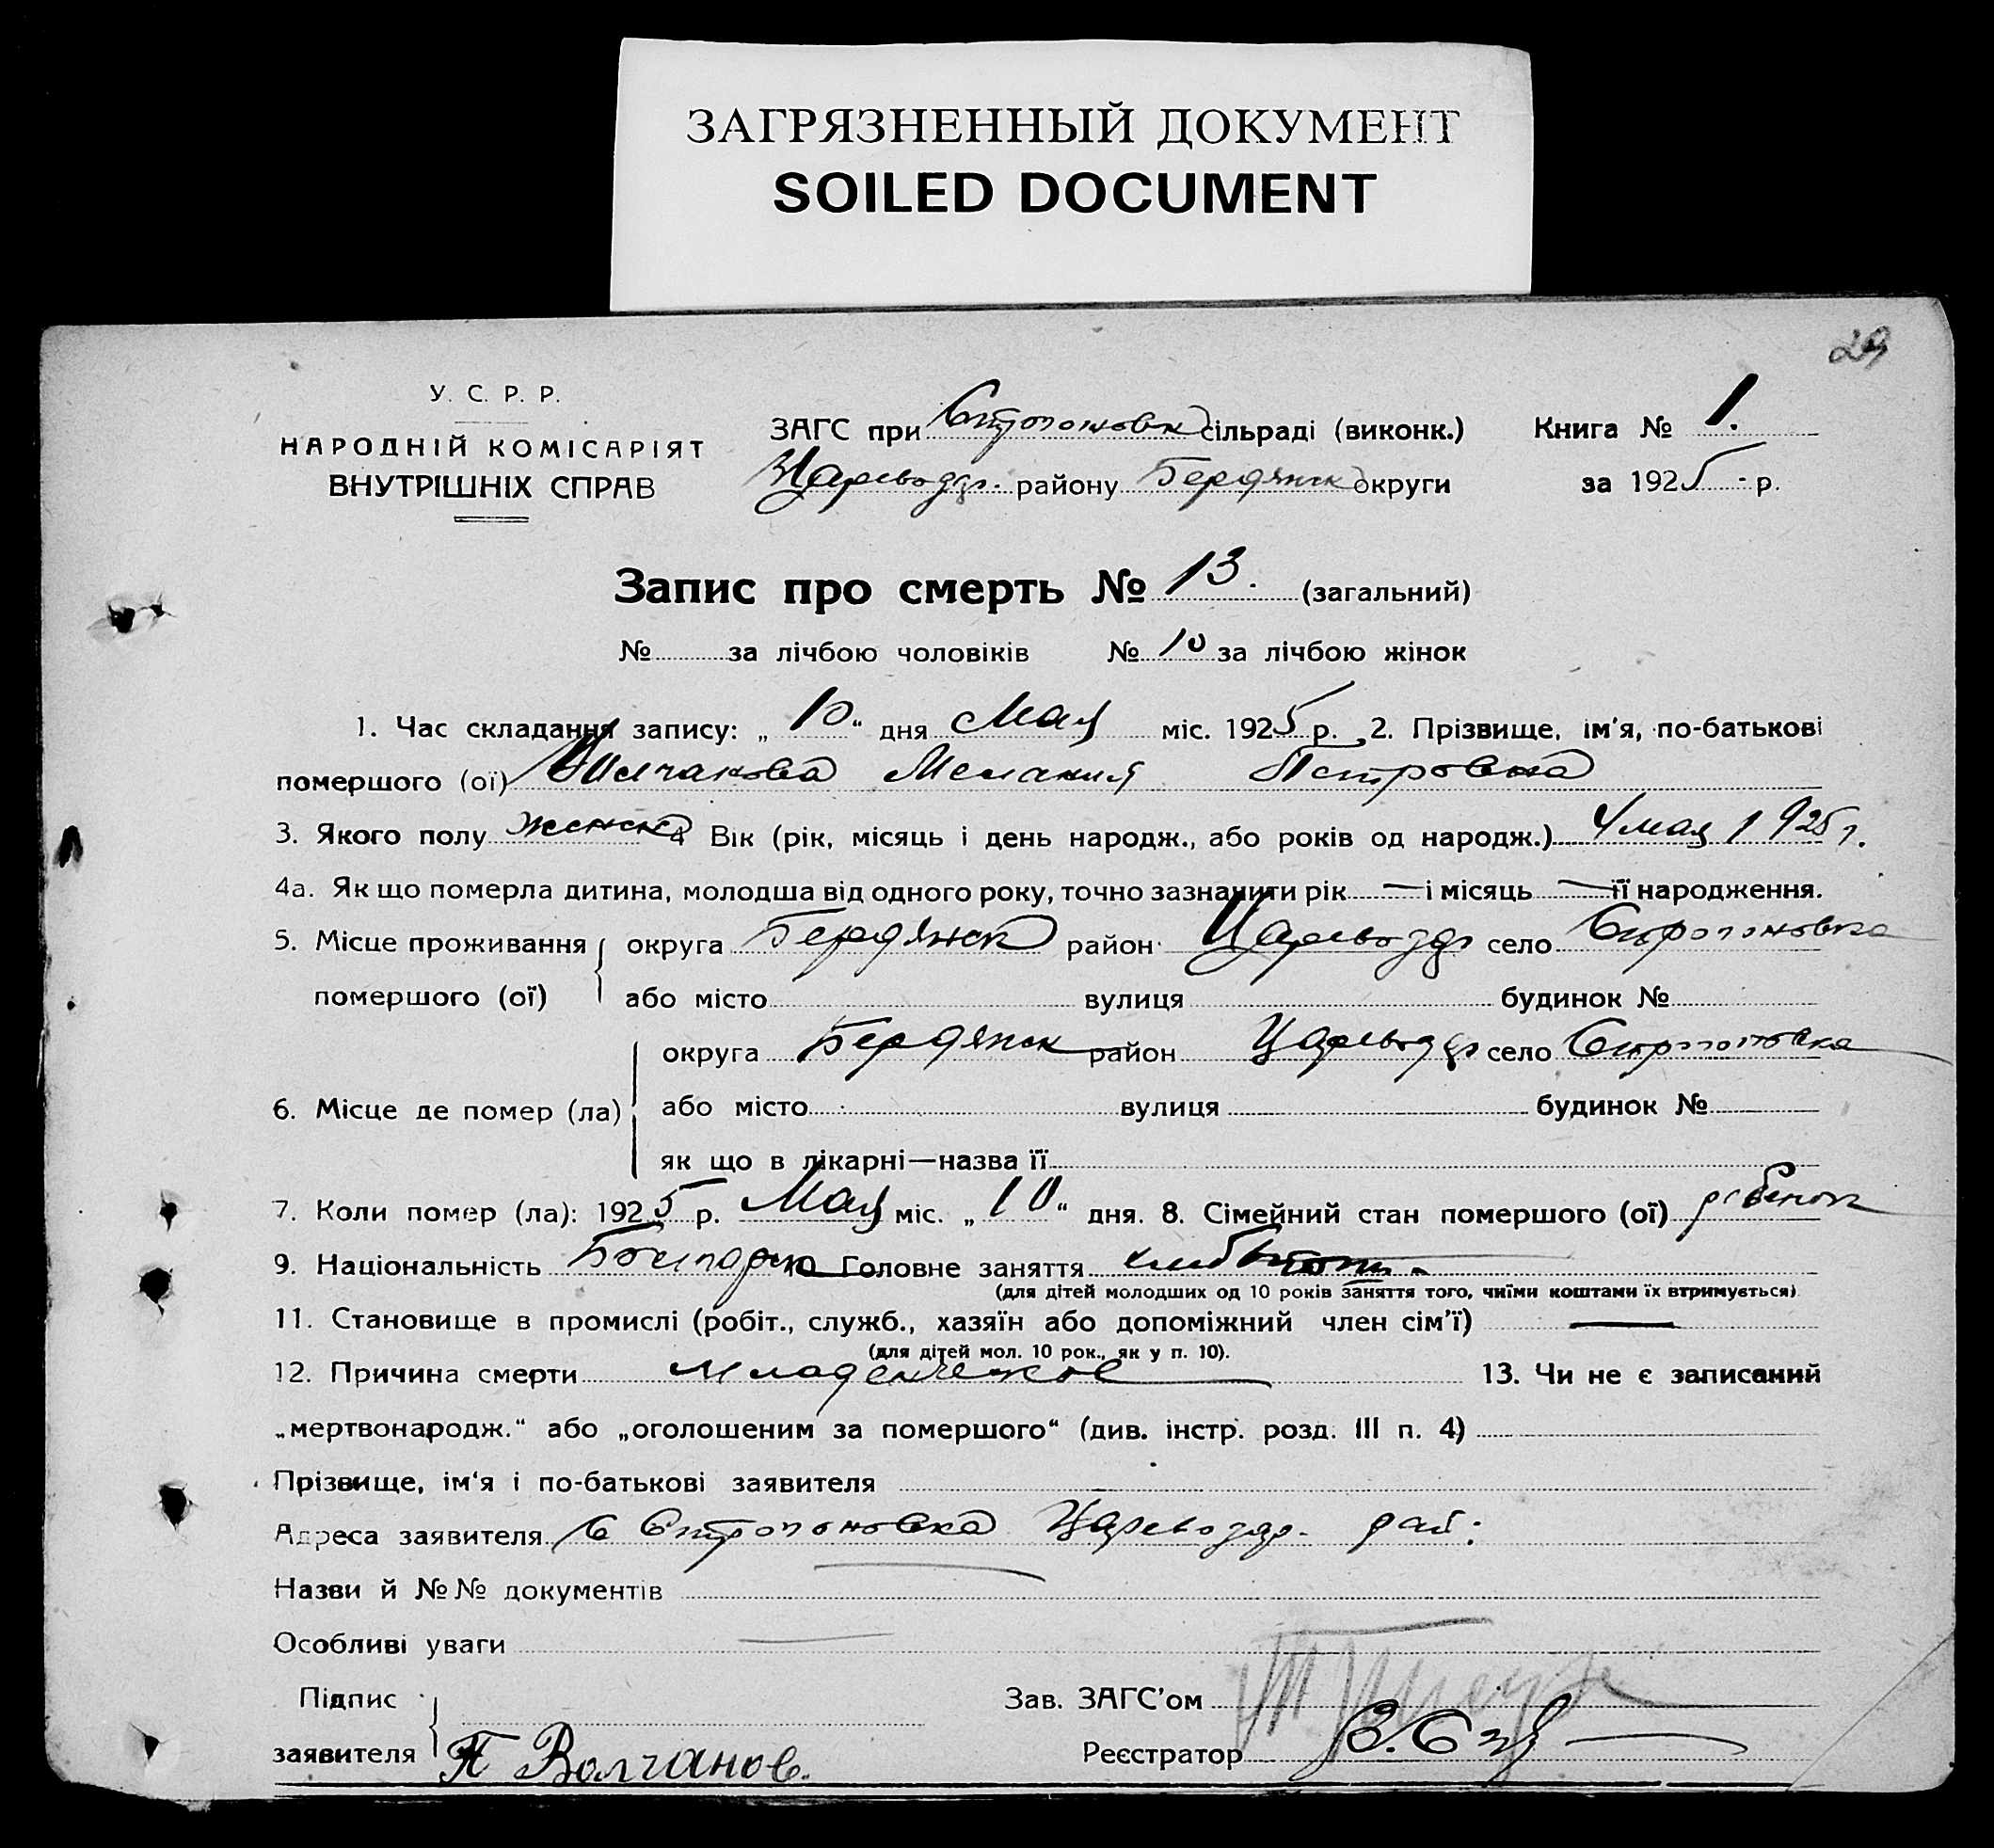 ЗАГРЯЗНЕННЫЙ ДОКУМЕНТ
SOILED DOCUMENT
29
У. С. Р. Р.
НАРОДНІЙ КОМІСАРІЯТ
ВНУТРІШНІХ СПРАВ
ЗАГС при Строгоновк сільраді (виконк.)
Цареводар. району Бердянск округи
Книга № 1.
за 1925 р.
Запис про смерть № 13. (загальний)
№ за лічбою чоловіків № 10 за лічбою жінок
1. Час складання запису: „10“ дня Мая міс. 1925 р. 2. Прізвище, ім'я, по-батькові
помершого (ої) Мелания Петровна
3. Якого полу женск 4 Вік (рік, місяць і день народж., або років од народж.) 4 мая 1925 г.
4а. Як що померла дитина, молодша від одного року, точно зазначити рік — і місяць — її народження.
5. Місце проживання помершого (ої) округа Бердянск район Цареводар село Строгоновка
або місто вулиця будинок №
6. Місце де помер (ла) округа Бердянск район Цареводар село Строгоновка
або місто вулиця будинок №
як що в лікарні—назва її
7. Коли помер (ла): 1925 р. Мая міс. „10“ дня. 8. Сімейний стан помершого (ої) ребенок
9. Національність Головне заняття
(для дітей молодших од 10 років заняття того, чиїми коштами їх втримується)
11. Становище в промислі (робіт., служб., хазяїн або допоміжний член сім'ї) —
(для дітей мол. 10 рок., як у п. 10).
12. Причина смерти младенческое 13. Чи не є записаний
„мертвонародж.“ або „оголошеним за помершого“ (див. інстр. розд. III п. 4)
Прізвище, ім'я і по-батькові заявителя
Адреса заявителя С Строгоновка Цареводар. рай.
Назви й №№ документів
Особливі уваги
Підпис заявителя П Волчанов.
Зав. ЗАГС'ом
Реєстратор